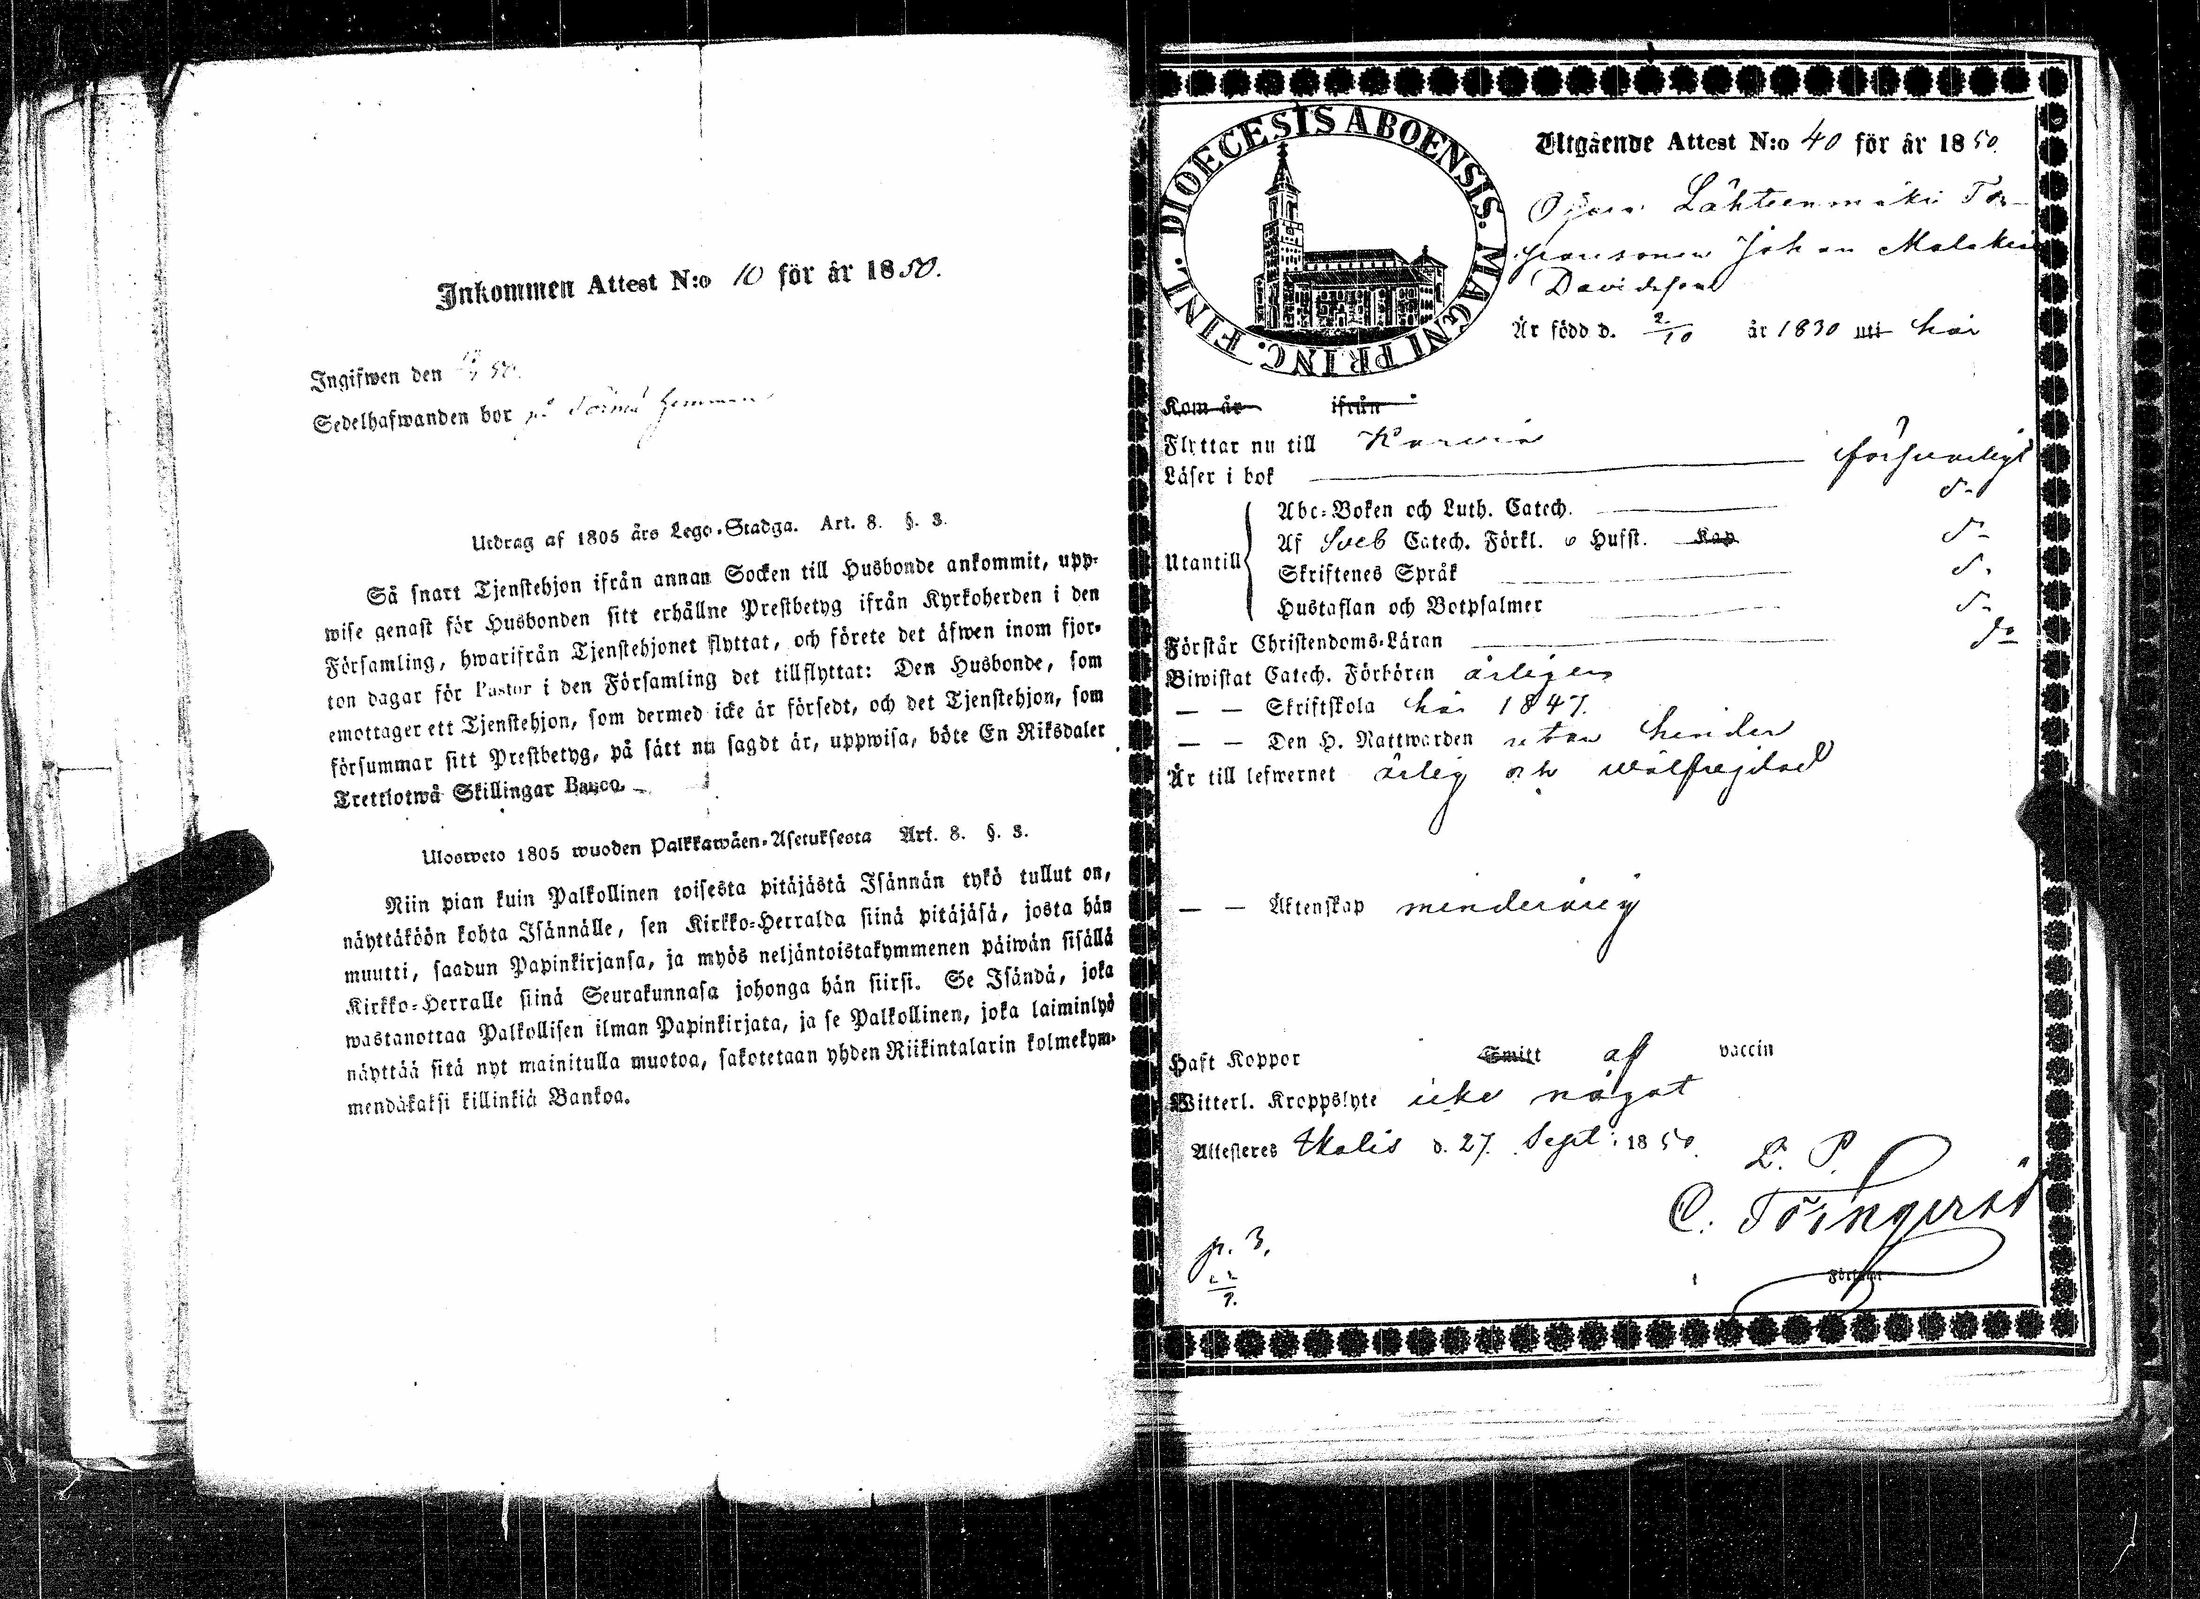 Inkommen Attest N:o 10 för år 1850.
Ingifwen den 50.
Sedelhafwanden bor på hemman
Utdrag af 1805 års Lego-Stadga. Art. 8. §. 3.
Så snart Tjenstehjon ifrån annan Socken till Husbonde ankommit, upp-
wise genast för Husbonden sitt erhållne Prestbetyg ifrån Kyrkoherden i den
Församling, hwarifrån Tjenstehjonet flyttat, och förete det äfwen inom fjor-
ton dagar för Pastor i den Församling det tillflyttat: Den Husbonde, som
emottager ett Tjenstehjon, som dermed icke är försedt, och det Tjenstehjon, som
försummar sitt Prestbetyg, på sätt nu sagdt är, uppwisa, böte En Riksdaler
Trettiotwå Skillingar Banco.
Ulosweto 1805 wuoden Palkkawäen-Asetuksesta Art. 8. §. 3.
Niin pian kuin Palkollinen toisesta pitäjästä Isännän tykö tullut on,
näyttäköön kohta Isännälle, sen Kirkko-Herralda siinä pitäjäsä, josta hän
muutti, saadun Papinkirjansa, ja myös neljäntoistakymmenen päiwän sisällä
Kirkko-Herralle siinä Seurakunnasa johonga hän siirsi. Se Isändä, joka
wastanottaa Palkollisen ilman Papinkirjata, ja se Palkollinen, joka laiminlyö
näyttää sitä nyt mainitulla muotoa, sakotetaan yhden Riikintalarin kolmekym-
mendäkaksi killinkiä Bankoa.
DIOECESIS ABOENSIS. MAGNI PRINC. FINL.
Utgående Attest N:o 40 för år 1850.
Lähteenmäki Tor-
paresonen Johan Malakias
Davidsson
Är född d. 2/10 år 1830 uti här
Kom år ifrån
Flyttar nu till Karvia
Läser i bok försvarligt
Abc-Boken och Luth. Catech. do
Utantill Af Sveb Catech. Förkl. o Husst. Kap do
Skriftenes Språk do
Hustaflan och Botpsalmer do
Förstår Christendoms-Läran do
Biwistat Catech. Förhören årligen
— — Skriftskola här 1847.
— — Den H. Nattwarden utan hinder
Är till lefwernet ärlig och wälfrejdad
— — Äktenskap minderårig
Haft Koppor Smitt af vaccin
Witterl. Kroppslyte icke något
Attesteres Ikalis d. 27. Sept: 1850.
L. P.
C. Törnqvist
p. 3.